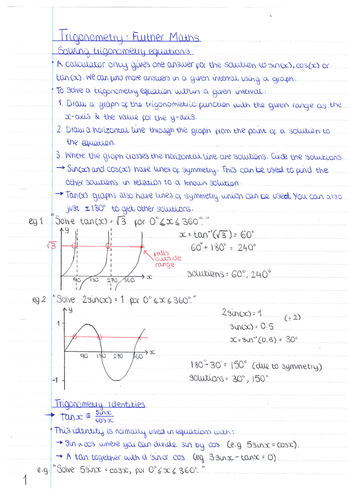 Trigonometry: Further Maths
Solving trigonometry equations
• A calculator only gives one answer for the solution to sin(x), cos(x) or
tan(x). We can find more answers in a given interval using a graph.
• To solve a trigonometry equation within a given interval:
1. Draw a graph of the trigonometric function with the given range as the
x-axis & the value for the y-axis.
2. Draw a horizontal line through the graph from the point of a solution to
the equation.
3. Where the graph crosses the horizontal line are solutions. Circle the solutions.
→ Sin(x) and cos(x) have lines of symmetry. This can be used to find the
other solutions in relation to a known solution.
→ Tan(x) graphs also have lines of symmetry which can be used. You can also
just ±180° to get other solutions.
eg.1 "Solve tan(x) = √3 for 0° ≤ x ≤ 360°."
y
√3
90 180 270 360
x
falls
outside
range
x = tan⁻¹(√3) = 60°
60° + 180° = 240°
solutions: 60°, 240°
eg.2 "Solve 2sin(x) = 1 for 0° ≤ x ≤ 360°."
y
1
-1
90 180 270 360
x
2sin(x) = 1 (÷2)
sin(x) = 0.5
x = sin⁻¹(0.5) = 30°
180° - 30° = 150° (due to symmetry)
solutions = 30°, 150°
Trigonometry Identities
→ tanx ≡ sinx/cosx
• This identity is normally used in equations with:
→ Sin & cos where you can divide sin by cos (e.g 5sinx = cosx).
→ A tan together with a sin or cos (eg 3sinx - tanx = 0).
e.g "Solve 5sinx = cosx, for 0° ≤ x ≤ 360°."
1